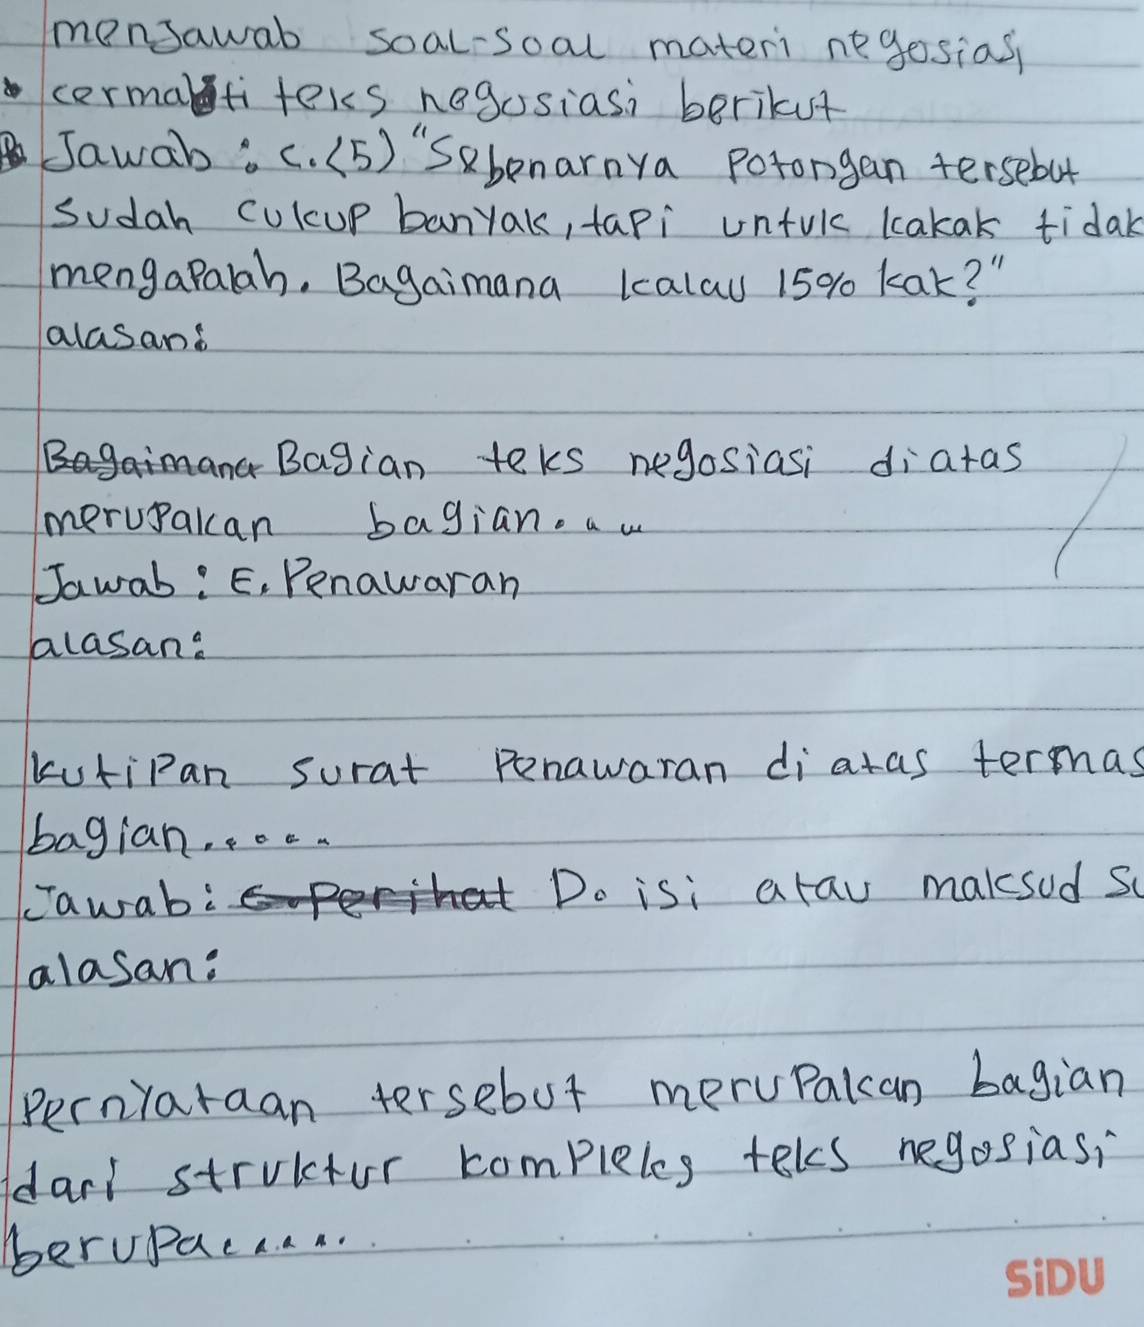 menjawab soal-soal materi negosiasi
cermati teks negosiasi berikut
Jawab : c. (5) "Sebenarnya Potongan tersebut
sudah cukup banyak, tapi untuk kakak tidak
mengapalah. Bagaimana kalau 15% kak?"
alasan:
Bagaimana Bagian teks negosiasi diatas
merupakan bagian...
Jawab : E. Penawaran
alasan:
kutipan surat Penawaran di atas termas
bagian.....
Jawab: C. Perihat D. isi atau maksud su
alasan:
Pernyataan tersebut merupakan bagian
dari struktur kompleks teks negosiasi
berupa.....
SiDU